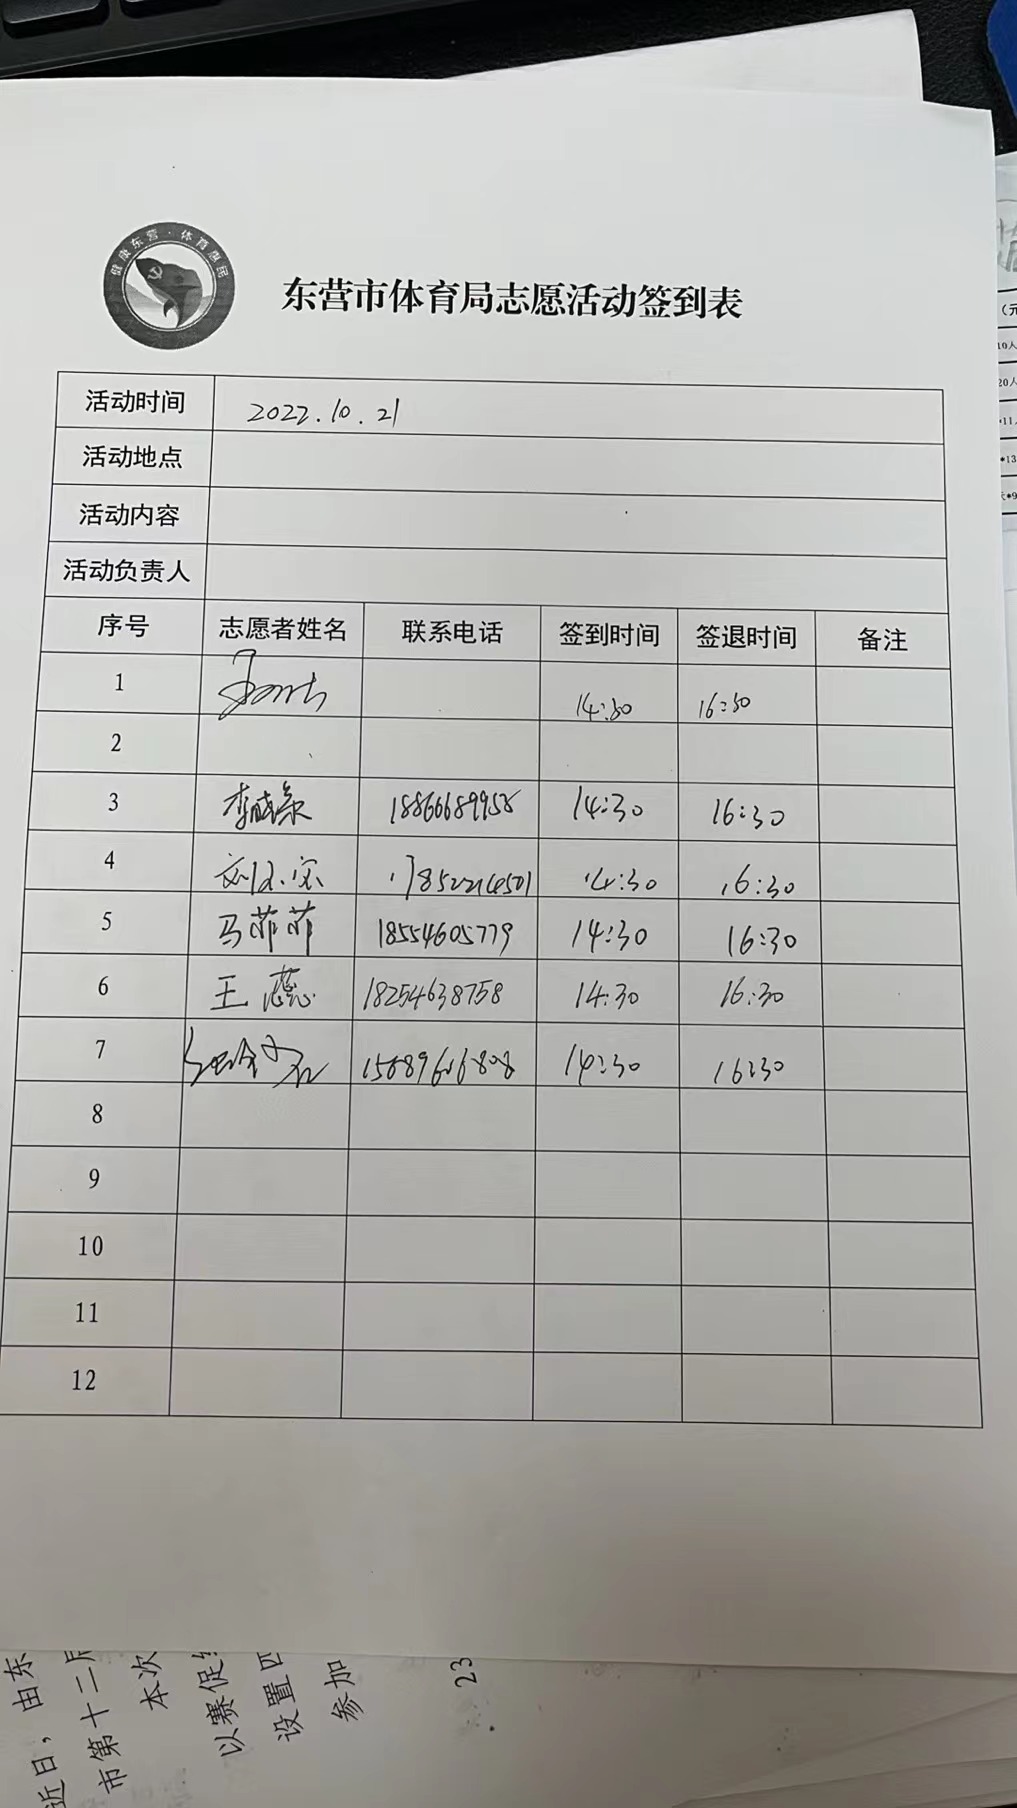 健康东营·体育惠民
东营市体育局志愿活动签到表
活动时间 2022.10.21
活动地点
活动内容
活动负责人
序号 志愿者姓名 联系电话 签到时间 签退时间 备注
1 14:30 16:30
2
3 14:30 16:30
4 14:30 16:30
5 马菲菲 18554605779 14:30 16:30
6 王蕊 18254638758 14:30 16:30
7 14:30 16:30
8
9
10
11
12
(元
10人
20人
*11
*13
天*9
近日,由东
市第十二届
本次
以赛促
设置四
参加
23